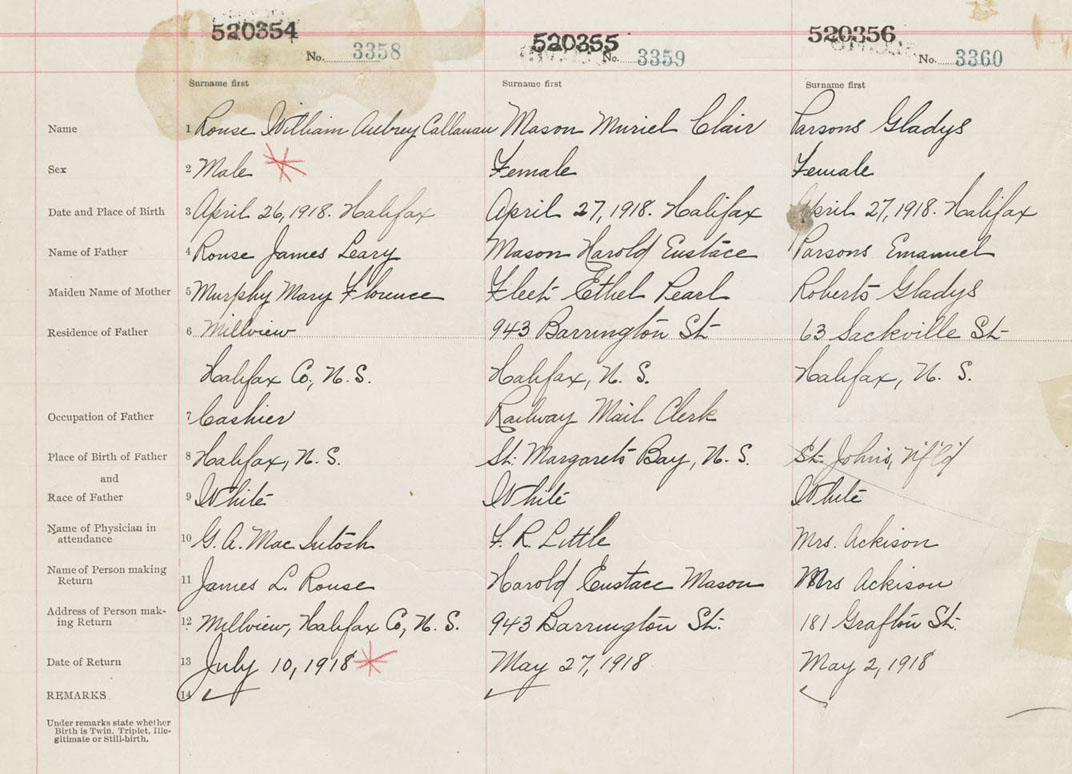 520354 520355 520356
No. 3358 No. 3359 No. 3360
Surname first Surname first Surname first
Name 1 Rouse William Aubrey Callanan Mason Muriel Clair Parsons Gladys
Sex 2 Male Female Female
Date and Place of Birth 3 April 26, 1918. Halifax April 27, 1918. Halifax April 27, 1918. Halifax
Name of Father 4 Rouse James Leary Mason Harold Eustace Parsons Emanuel
Maiden Name of Mother 5 Murphy Mary Florence Fleet Ethel Pearl Roberts Gladys
Residence of Father 6 Millview 943 Barrington St. 63 Sackville St.
Halifax Co, N.S. Halifax, N.S. Halifax, N.S.
Occupation of Father 7 Cashier Railway Mail Clerk
Place of Birth of Father 8 Halifax, N.S. St. Margarets Bay, N.S. St. Johns, N'f'l'd
and
Race of Father 9 White White White
Name of Physician in
attendance 10 G. A. Mac Intosh F. R. Little Mrs. Ackison
Name of Person making
Return 11 James L. Rouse Harold Eustace Mason Mrs Ackison
Address of Person mak-
ing Return 12 Millview, Halifax Co, N.S. 943 Barrington St. 181 Grafton St.
Date of Return 13 July 10, 1918 May 27, 1918 May 2, 1918
REMARKS 14
Under remarks state whether
Birth is Twin, Triplet, Ille-
gitimate or Still-birth.